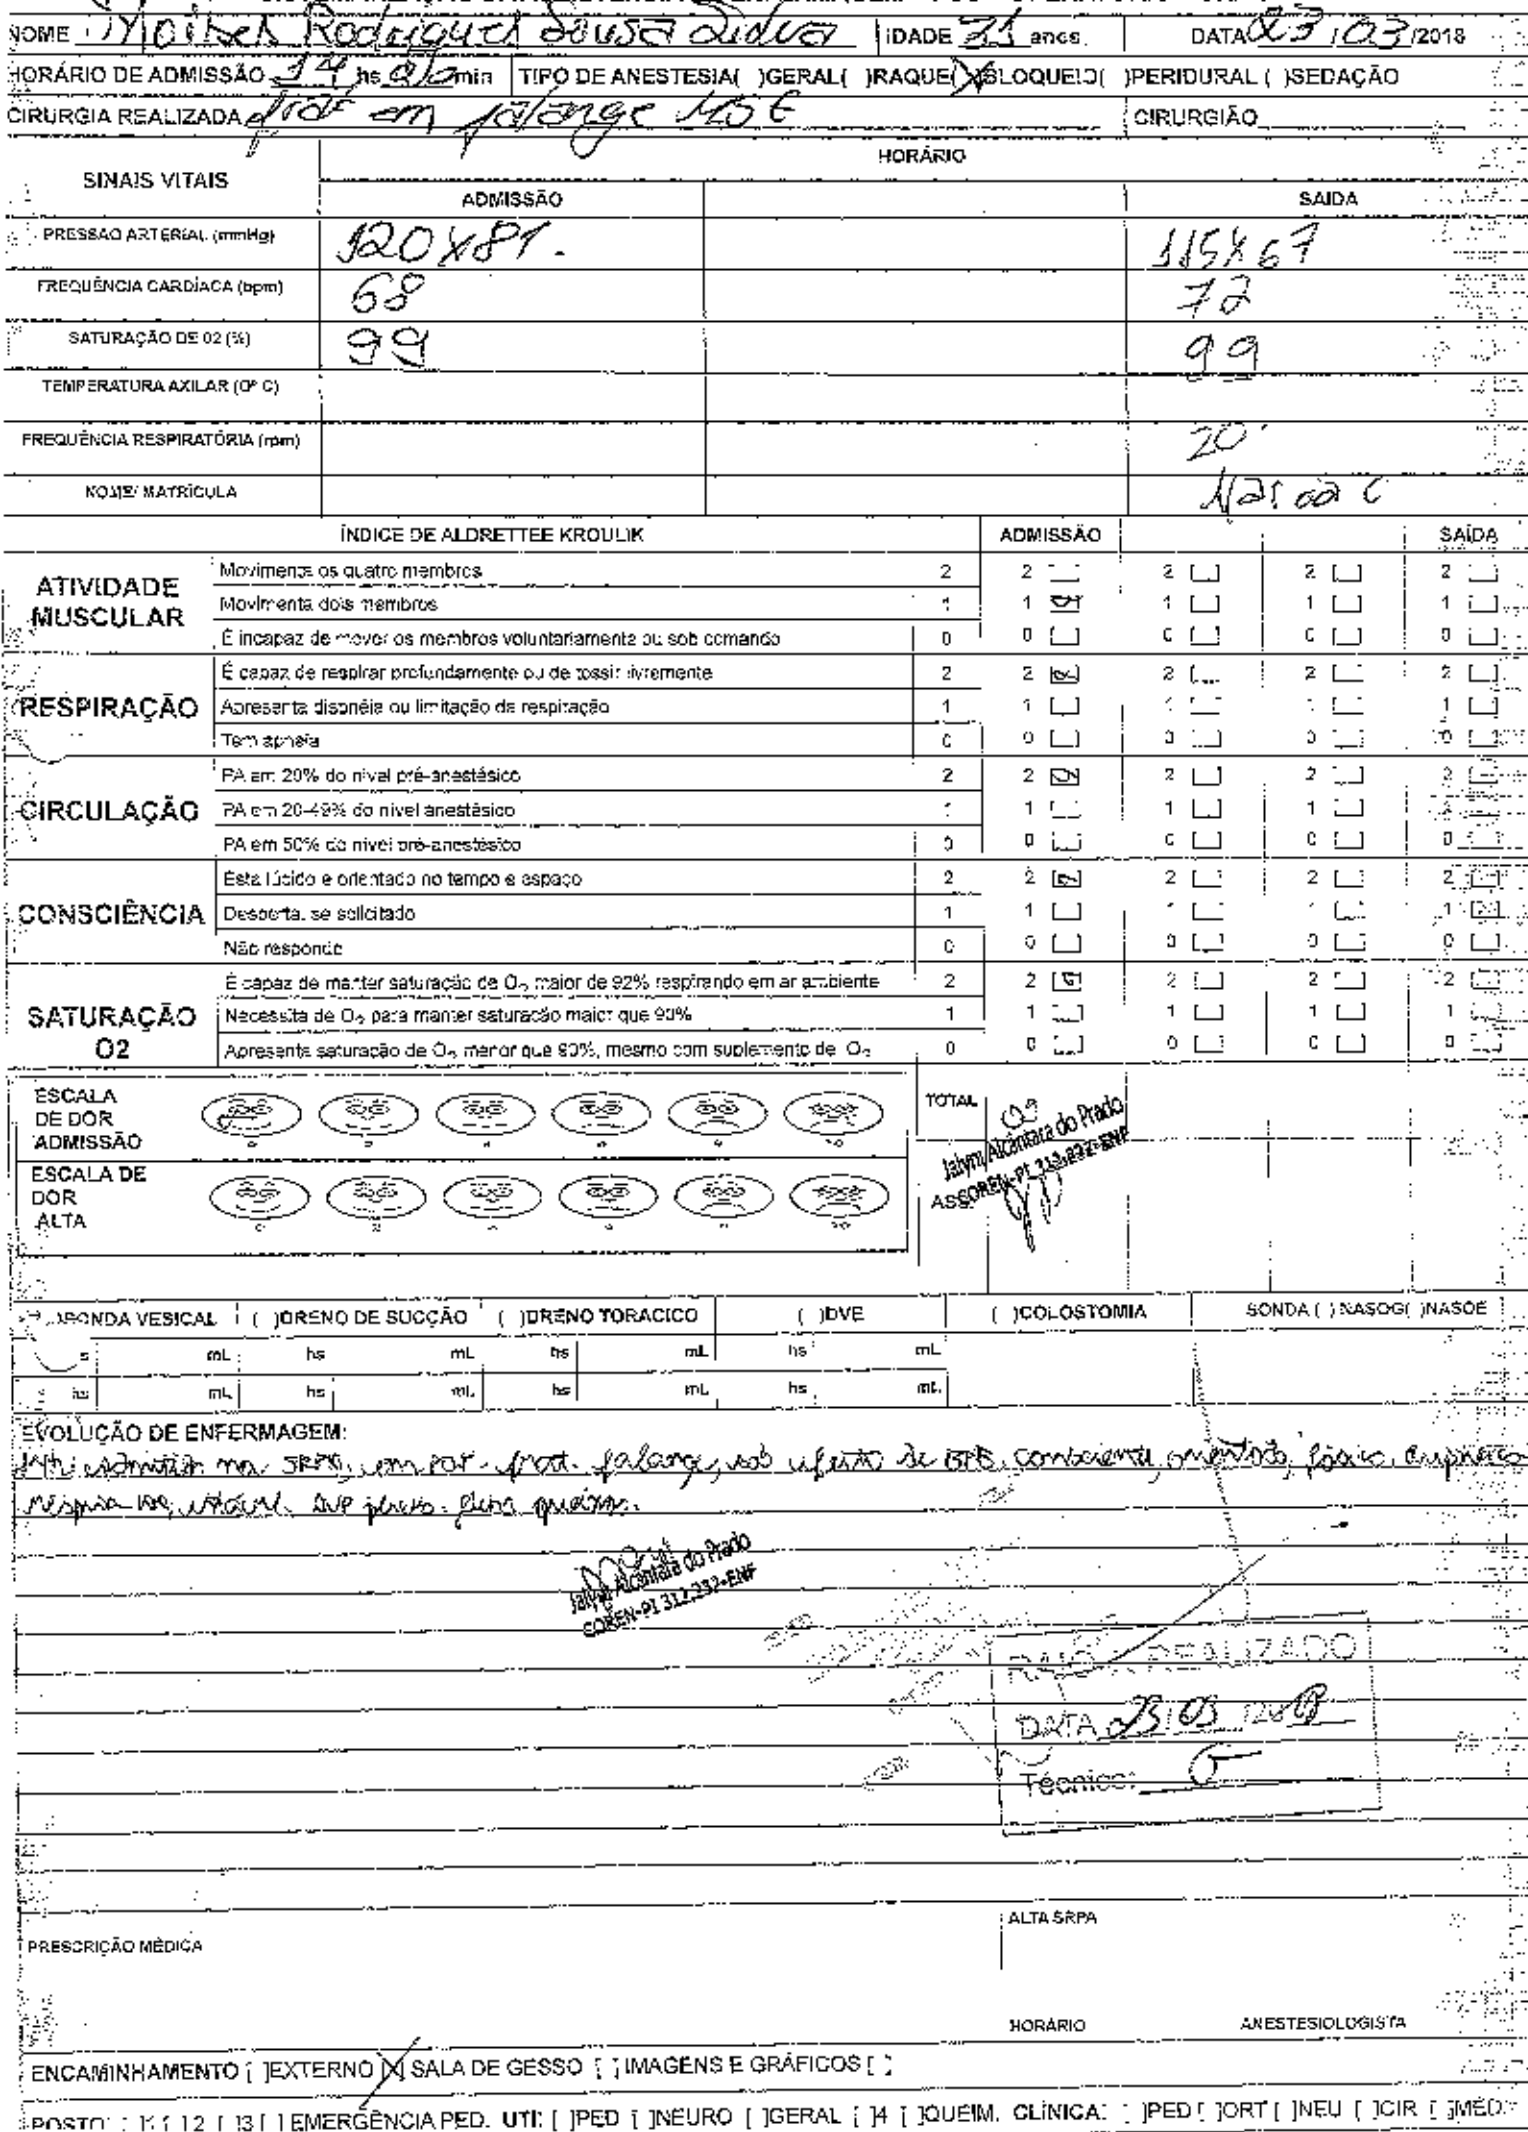 NOME Rodrigues Sousa IDADE 31 anos. DATA 23/03/2018
HORÁRIO DE ADMISSÃO 14 hs min TIPO DE ANESTESIA( )GERAL( )RAQUE(X)BLOQUEIO( )PERIDURAL ( )SEDAÇÃO
CIRURGIA REALIZADA em falange MSE CIRURGIÃO
SINAIS VITAIS HORÁRIO
ADMISSÃO SAIDA
PRESSAO ARTERIAL (mmHg) 120X81. 115X67
FREQUÊNCIA CARDÍACA (bpm) 68 72
SATURAÇÃO DE 02 (%) 99 99
TEMPERATURA AXILAR (0º C)
FREQUÊNCIA RESPIRATÓRIA (rpm) 20
NOME/ MATRÍCULA
ÍNDICE DE ALDRETTEE KROULIK ADMISSÃO SAÍDA
ATIVIDADE MUSCULAR
Movimenta os quatro membros 2 2 [ ] 2 [ ] 2 [ ] 2 [ ]
Movimenta dois membros 1 1 [x] 1 [ ] 1 [ ] 1 [ ]
É incapaz de mover os membros voluntariamente ou sob comando 0 0 [ ] 0 [ ] 0 [ ] 0 [ ]
RESPIRAÇÃO
É capaz de respirar profundamente ou de tossir livremente 2 2 [x] 2 [ ] 2 [ ] 2 [ ]
Apresenta disonéia ou limitação da respiração 1 1 [ ] 1 [ ] 1 [ ] 1 [ ]
Tem apneia 0 0 [ ] 0 [ ] 0 [ ] 0 [ ]
CIRCULAÇÃO
PA em 20% do nivel pré-anestésico 2 2 [x] 2 [ ] 2 [ ] 2 [ ]
PA em 20-49% do nivel anestésico 1 1 [ ] 1 [ ] 1 [ ] 1 [ ]
PA em 50% do nivel pré-anestésico 0 0 [ ] 0 [ ] 0 [ ] 0 [ ]
CONSCIÊNCIA
Esta lúcido e orientado no tempo e espaço 2 2 [x] 2 [ ] 2 [ ] 2 [ ]
Desperta, se solicitado 1 1 [ ] 1 [ ] 1 [ ] 1 [x]
Não responde 0 0 [ ] 0 [ ] 0 [ ] 0 [ ]
SATURAÇÃO O2
É capaz de manter saturação de O2 maior de 92% respirando em ar ambiente 2 2 [x] 2 [ ] 2 [ ] 2 [ ]
Necessita de O2 para manter saturação maior que 90% 1 1 [ ] 1 [ ] 1 [ ] 1 [ ]
Apresenta saturação de O2 menor que 90%, mesmo com suplemento de O2 0 0 [ ] 0 [ ] 0 [ ] 0 [ ]
ESCALA DE DOR ADMISSÃO
TOTAL 09
Jalym Alcântara do Prado
COREN-PI 312.232-ENF
ASS.
ESCALA DE DOR ALTA
SONDA VESICAL ( )DRENO DE SUCÇÃO ( )DRENO TORACICO ( )DVE ( )COLOSTOMIA SONDA ( ) NASOG( )NASOE
mL hs mL hs mL hs mL
hs mL hs mL hs mL hs mL
EVOLUÇÃO DE ENFERMAGEM:
falange, sob efeito de consciente, orientado,
Jalym Alcântara do Prado
COREN-PI 312.232-ENF
RAIO X REALIZADO
DATA 23/03/2018
Técnico:
PRESCRIÇÃO MÉDICA ALTA SRPA
HORÁRIO ANESTESIOLOGISTA
ENCAMINHAMENTO [ ]EXTERNO [X] SALA DE GESSO [ ] IMAGENS E GRÁFICOS [ ]
POSTO: [ ]1 [ ]2 [ ]3 [ ] EMERGÊNCIA PED. UTI: [ ]PED [ ]NEURO [ ]GERAL [ ]4 [ ]QUEIM. CLÍNICA: [ ]PED [ ]ORT [ ]NEU [ ]CIR [ ]MÉD.